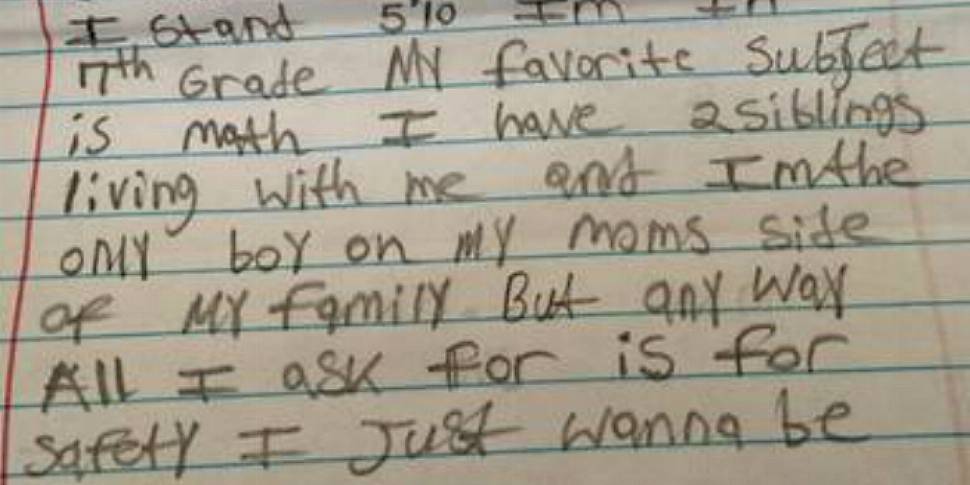 I Stand 5'10 Im In
7th Grade MY favorite Subject
is math I have 2 siblings
living with me and Im the
only boy on MY moms side
of MY family But any way
All I ask for is for
safety I Just wanna be